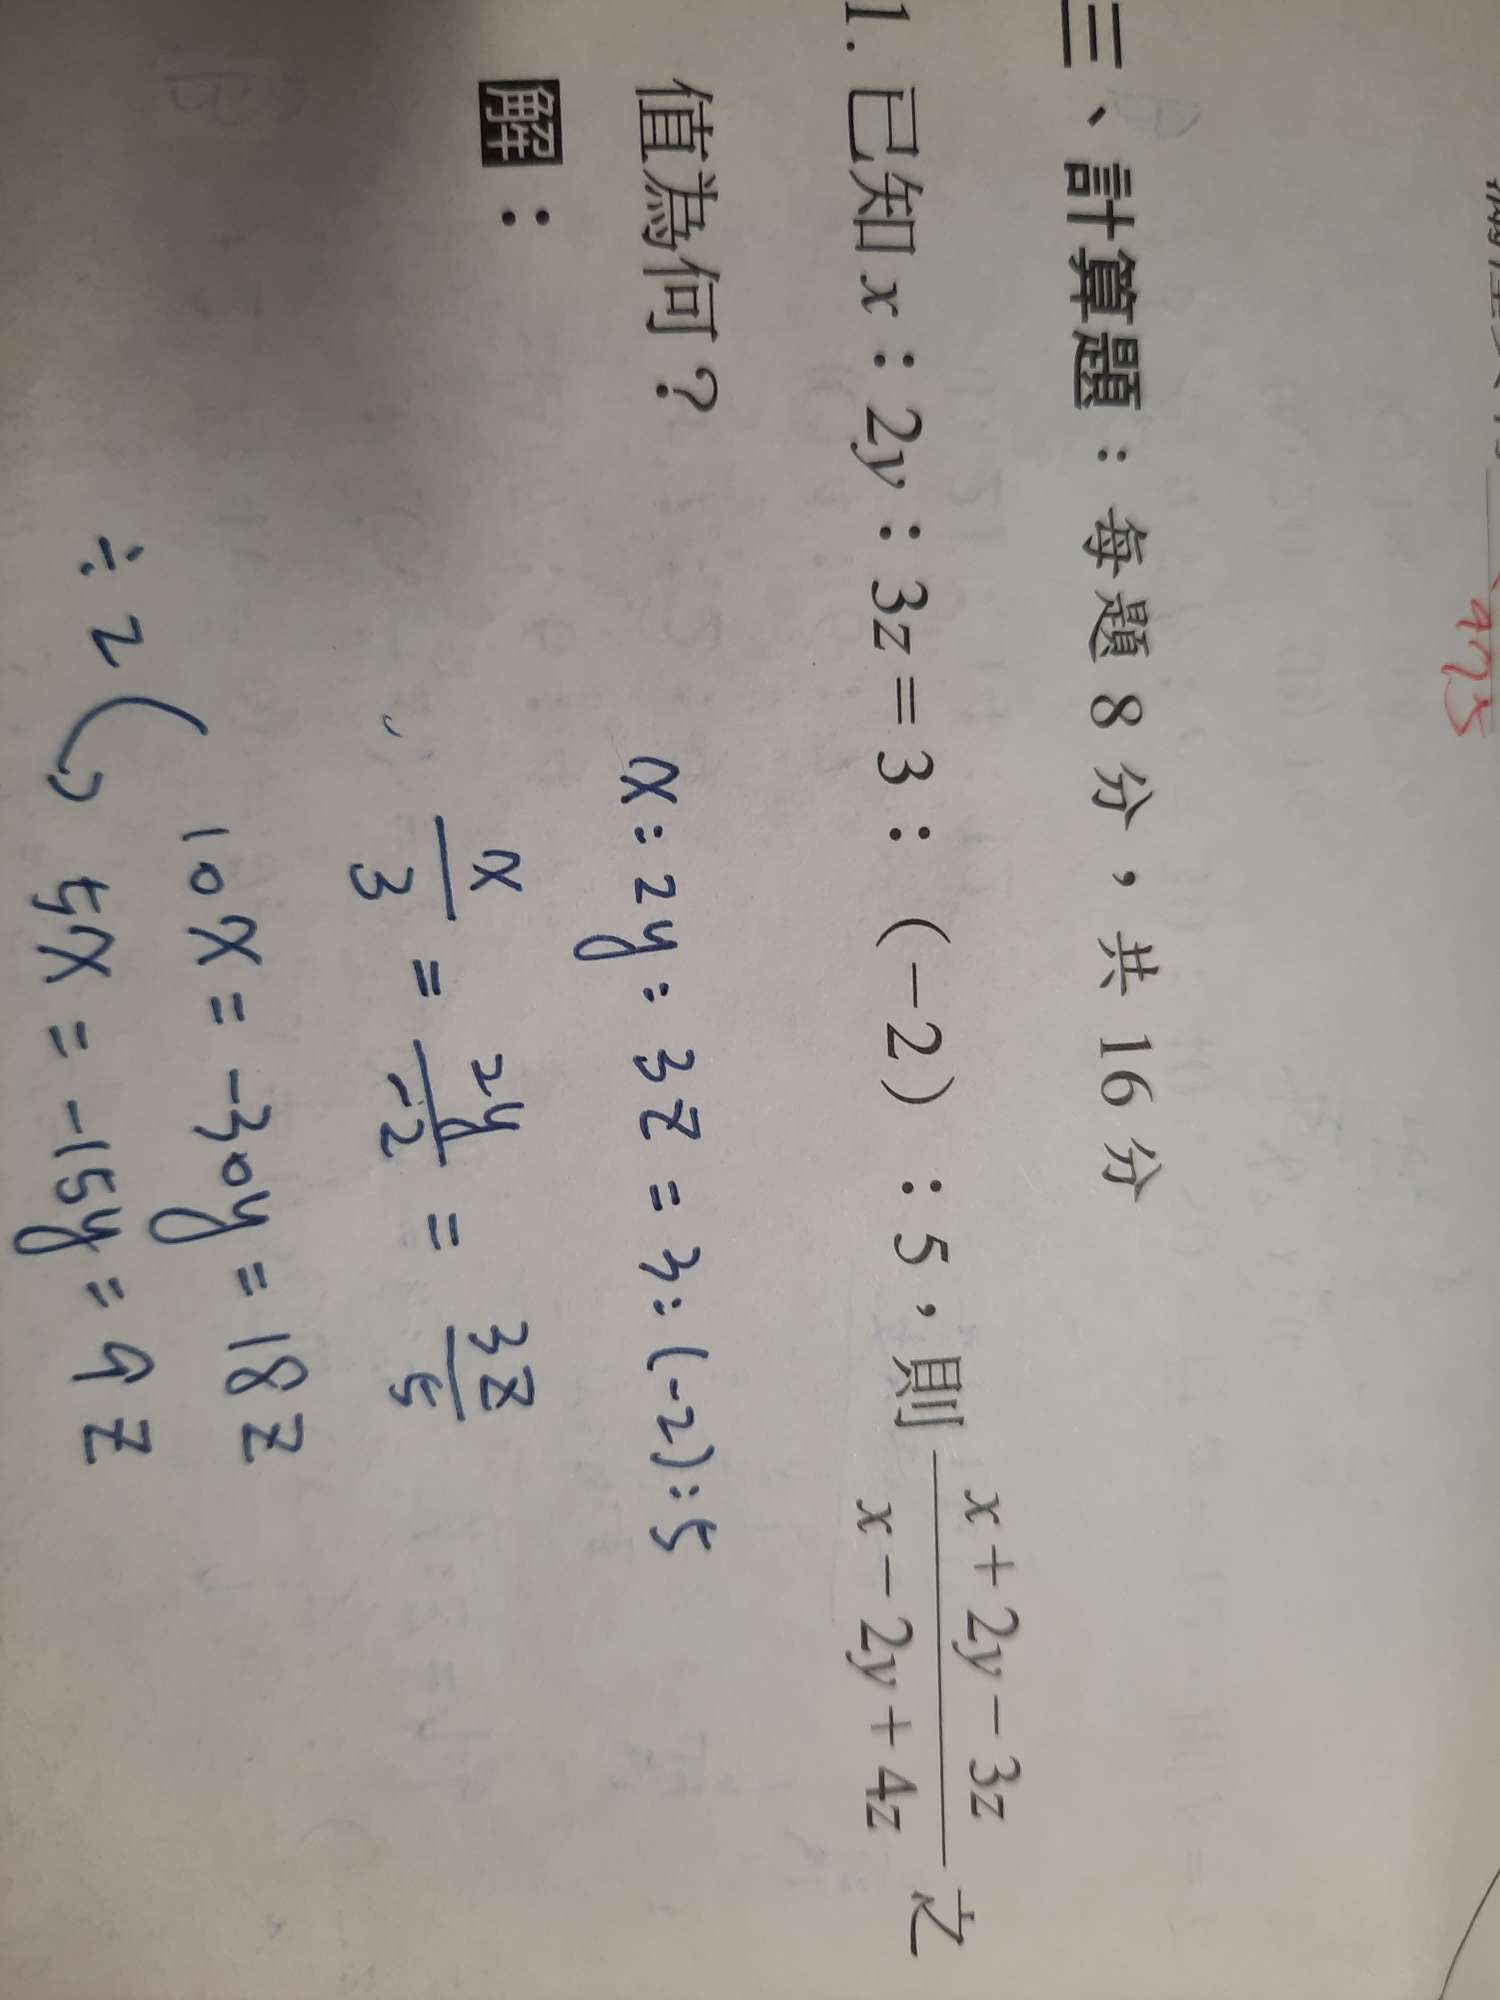 975
三、計算題：每題 8 分，共 16 分
1. 已知 x：2y：3z＝3：（－2）：5，則 \frac{x＋2y－3z}{x－2y＋4z} 之
值為何？
解：
x：2y：3z = 3：(-2)：5
\frac{x}{3} = \frac{2y}{-2} = \frac{3z}{5}
10x = -30y = 18z
÷2 5x = -15y = 9z